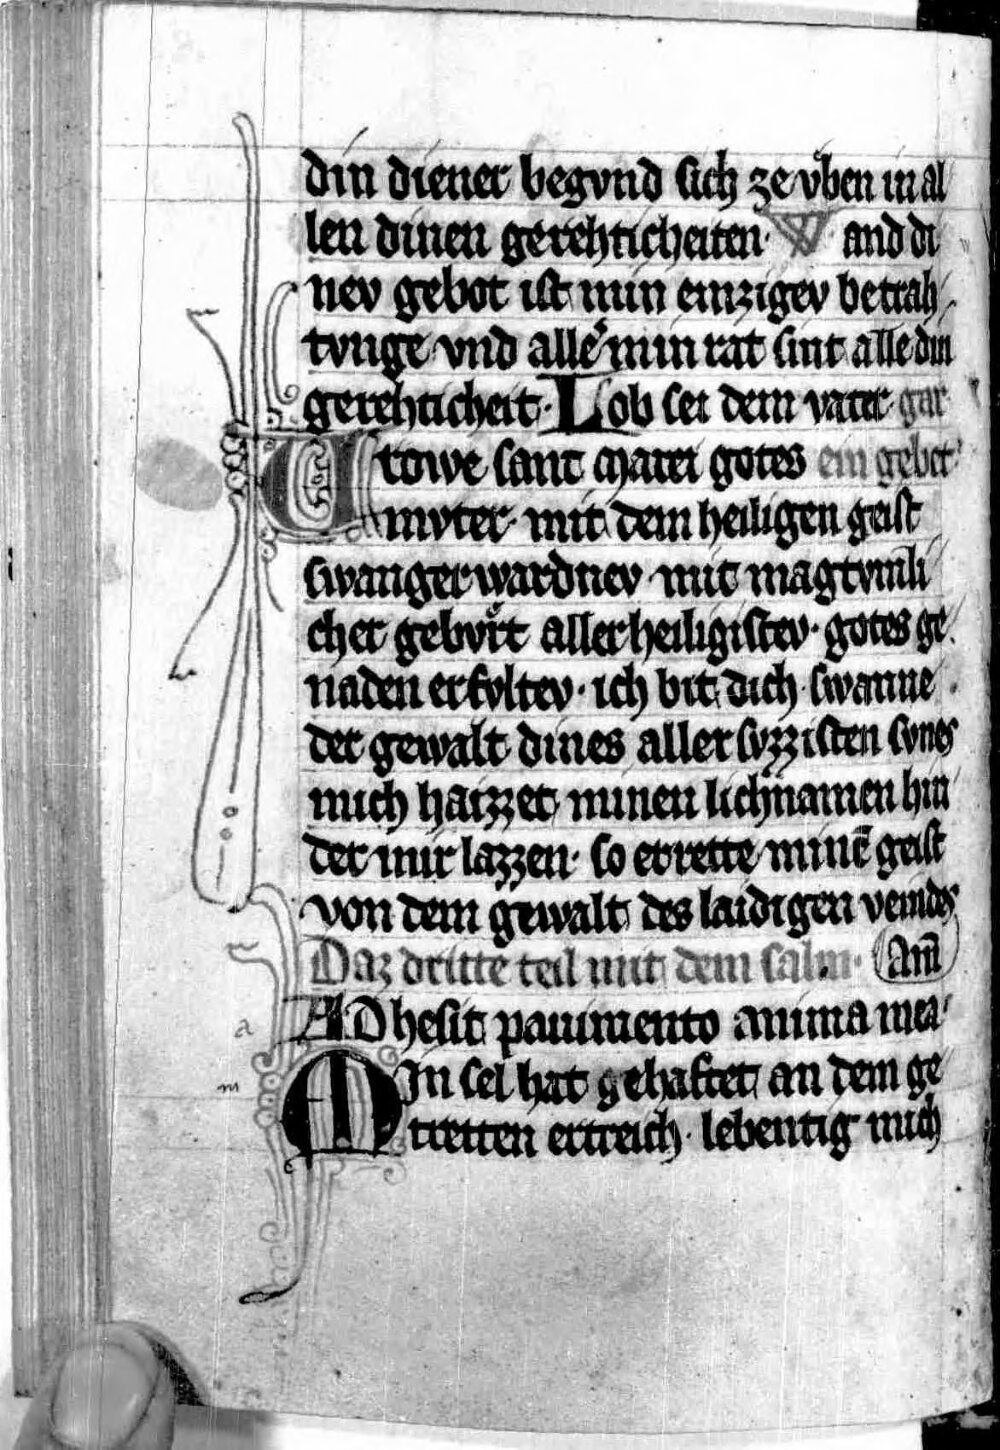 din diener begvnd sich ze vͤben in al
len dinen gerehticheiten· Wand di
nev gebot ist min einzigev betrah
tvnge vnd alle min rat sint alle din
gerehticheit· Lob sei dem vater gar
Vrowe sant marei gotes ein gebet
mvter· mit dem heiligen geist
swanger wardnev mit magtvmli
cher gebvͤrt aller heiligistev· gotes ge
naden erfvltev· ich bit dich swanne
der gewalt dines aller svzzisten svnes
mich haizzet minen lichnamen hin
der mir lazzen· so errette minē geist
von dem gewalt des laidigen veindes
Daz dritte teil mit dem salm· Am̄
ADhesit pauimento anima mea·
a
MIn sel hat gehaftet an dem ge
m
tretten ertreich· lebentig mich